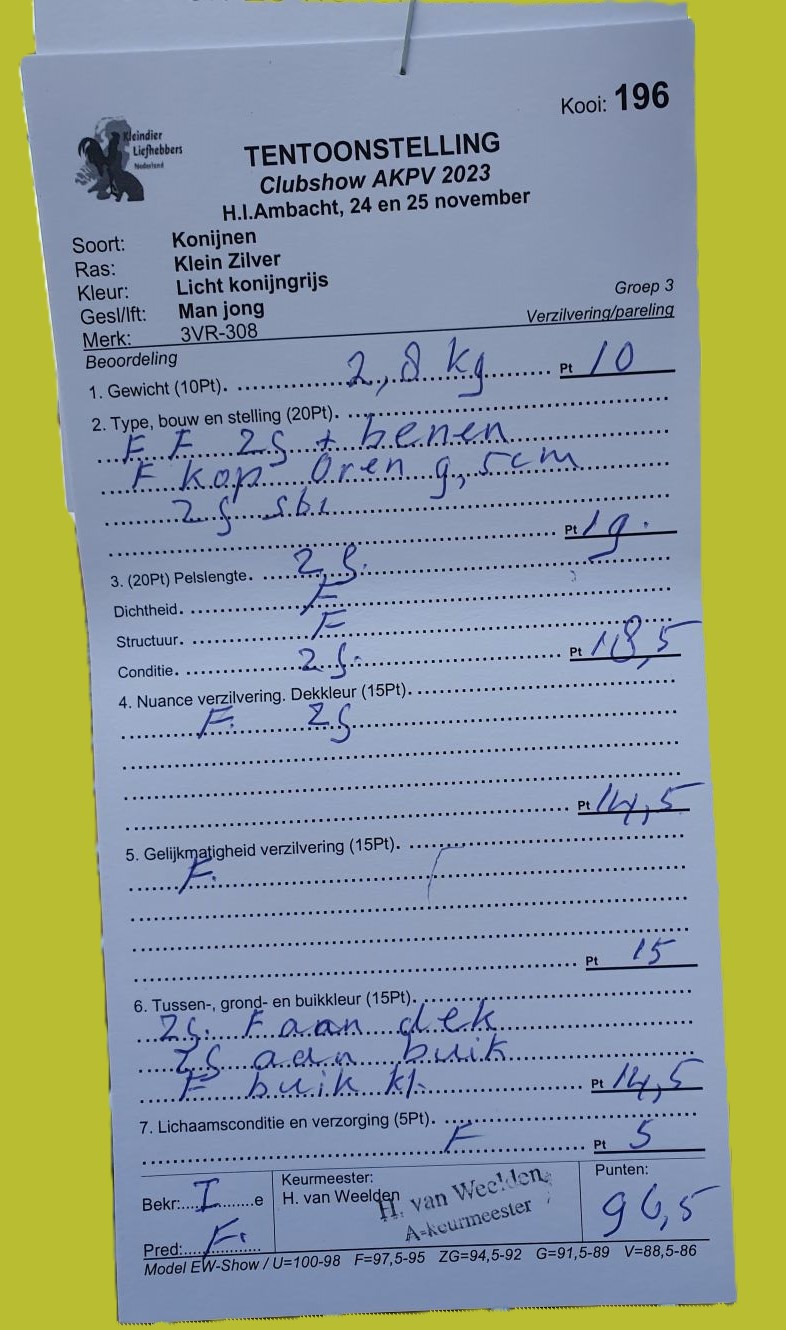 Kooi: 196
Kleindier
Liefhebbers
Nederland
TENTOONSTELLING
Clubshow AKPV 2023
H.I.Ambacht, 24 en 25 november
Soort: Konijnen
Ras: Klein Zilver
Kleur: Licht konijngrijs
Gesl/lft: Man jong
Merk: 3VR-308
Groep 3
Verzilvering/pareling
Beoordeling
1. Gewicht (10Pt). 2,8 kg Pt 10
2. Type, bouw en stelling (20Pt).
F F ZG + benen
F kop oren 9,5cm
ZG
Pt 19.
3. (20Pt) Pelslengte. ZG.
Dichtheid. F
Structuur. F
Conditie. ZG. Pt 18,5
4. Nuance verzilvering. Dekkleur (15Pt).
F. ZG
Pt 14,5
5. Gelijkmatigheid verzilvering (15Pt).
F.
Pt 15
6. Tussen-, grond- en buikkleur (15Pt).
ZG. F aan dek
ZG aan buik
F buik kl. Pt 14,5
7. Lichaamsconditie en verzorging (5Pt).
F Pt 5
Bekr: I e
Pred: F.
Keurmeester:
H. van Weelden
H. van Weelden
A-keurmeester
Punten:
96,5
Model EW-Show / U=100-98 F=97,5-95 ZG=94,5-92 G=91,5-89 V=88,5-86